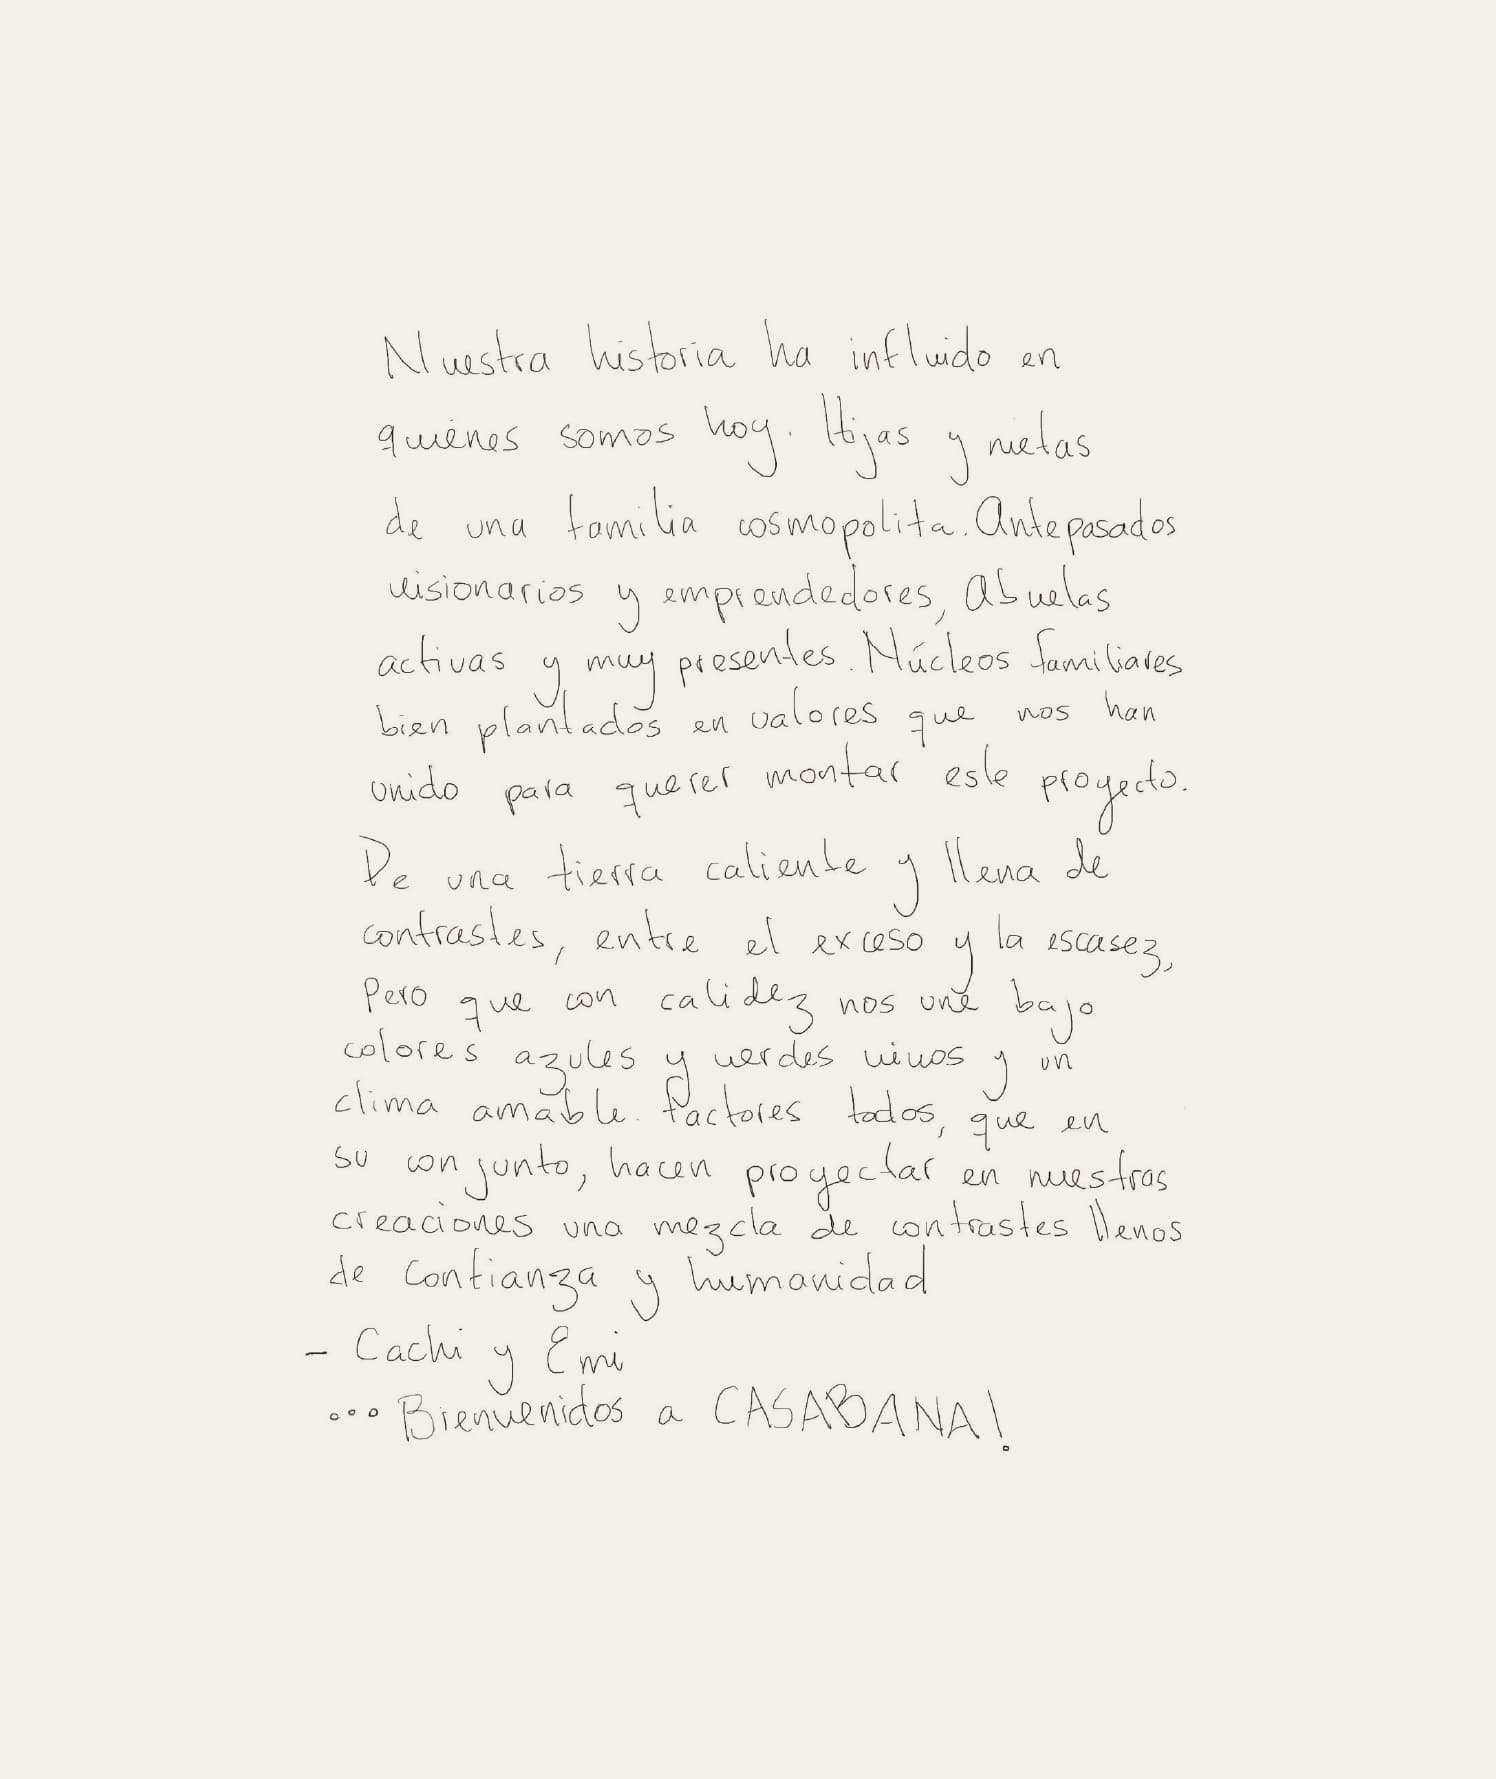 Nuestra historia ha influido en
quiénes somos hoy. Hijas y nietas
de una familia cosmopolita. Antepasados
visionarios y emprendedores, Abuelas
activas y muy presentes. Núcleos familiares
bien plantados en valores que nos han
unido para querer montar este proyecto.
De una tierra caliente y llena de
contrastes, entre el exceso y la escasez,
Pero que con calidez nos une bajo
colores azules y verdes vivos y un
clima amable. Factores todos, que en
su conjunto, hacen proyectar en nuestras
creaciones una mezcla de contrastes llenos
de confianza y humanidad
- Cachi y Emi
... Bienvenidos a CASABANA!